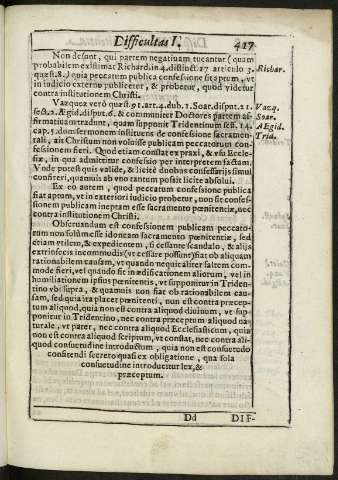 Difficultas I.
427
Non desunt, qui partem negatiuam tueantur (quam
probabilem existimat Richard. in 4. distinct. 17 articulo 3.
Richar.
quæst. 8.) quia peccatum publica confessione fit aptum, vt
in iudicio externo publicetur, & probetur, quod videtur
contra institutionem Christi.
Vazquez verò quæst. 91. art. 4. dub. 1. Soar. disput. 21.
Vazq.
sect. 2. & Ægid. disput. 6. & communiter Doctores partem af-
Soar.
firmatiuam tradunt, quam supponit Tridentinum sess. 14.
Ægid.
cap. 5. dum sermonem instituens de confessione sacramen-
Trid.
tali, ait Christum non voluisse publicam peccatorum con-
fessionem fieri. Quod etiam constat ex praxi, & vsu Eccle-
siæ, in qua admittitur confessio per interpretem factam.
Vnde potest quis valide, & licitè duobus confessarijs simul
confiteri, quamuis ab vno tantum possit licitè absolui.
Ex eo autem, quod peccatum confessione publica
fiat aptum, vt in exteriori iudicio probetur, non fit confes-
sionem publicam ineptam esse sacramento pœnitentiæ, nec
contra institutionem Christi.
Obseruandum est confessionem publicam peccato-
rum non solum esse idoneam sacramento pœnitentiæ, sed
etiam vtilem, & expedientem, si cessante scandalo, & alijs
extrinsecis incommodis (vt cessare possunt) fiat ob aliquam
rationabilem causam, vt quando nequit aliter saltem com-
mode fieri, vel quando fit in ædificationem aliorum, vel in
humiliationem ipsius pœnitentis, vt supponitur in Triden-
tino vbi supra, & quamuis non fiat ob rationabilem cau-
sam, sed quia ita placet pœnitenti, non est contra præcep-
tum aliquod, quia non est contra aliquod diuinum, vt sup-
ponitur in Tridentino, nec contra præceptum aliquod na-
turale, vt patet, nec contra aliquod Ecclesiasticum, quia
non est contra aliquod scriptum, vt constat, nec contra ali-
quod consuetudine introductum, quia non est consuetudo
confitendi secreto quasi ex obligatione, qua sola
consuetudine introducitur lex, &
præceptum.
Dd
DIF-